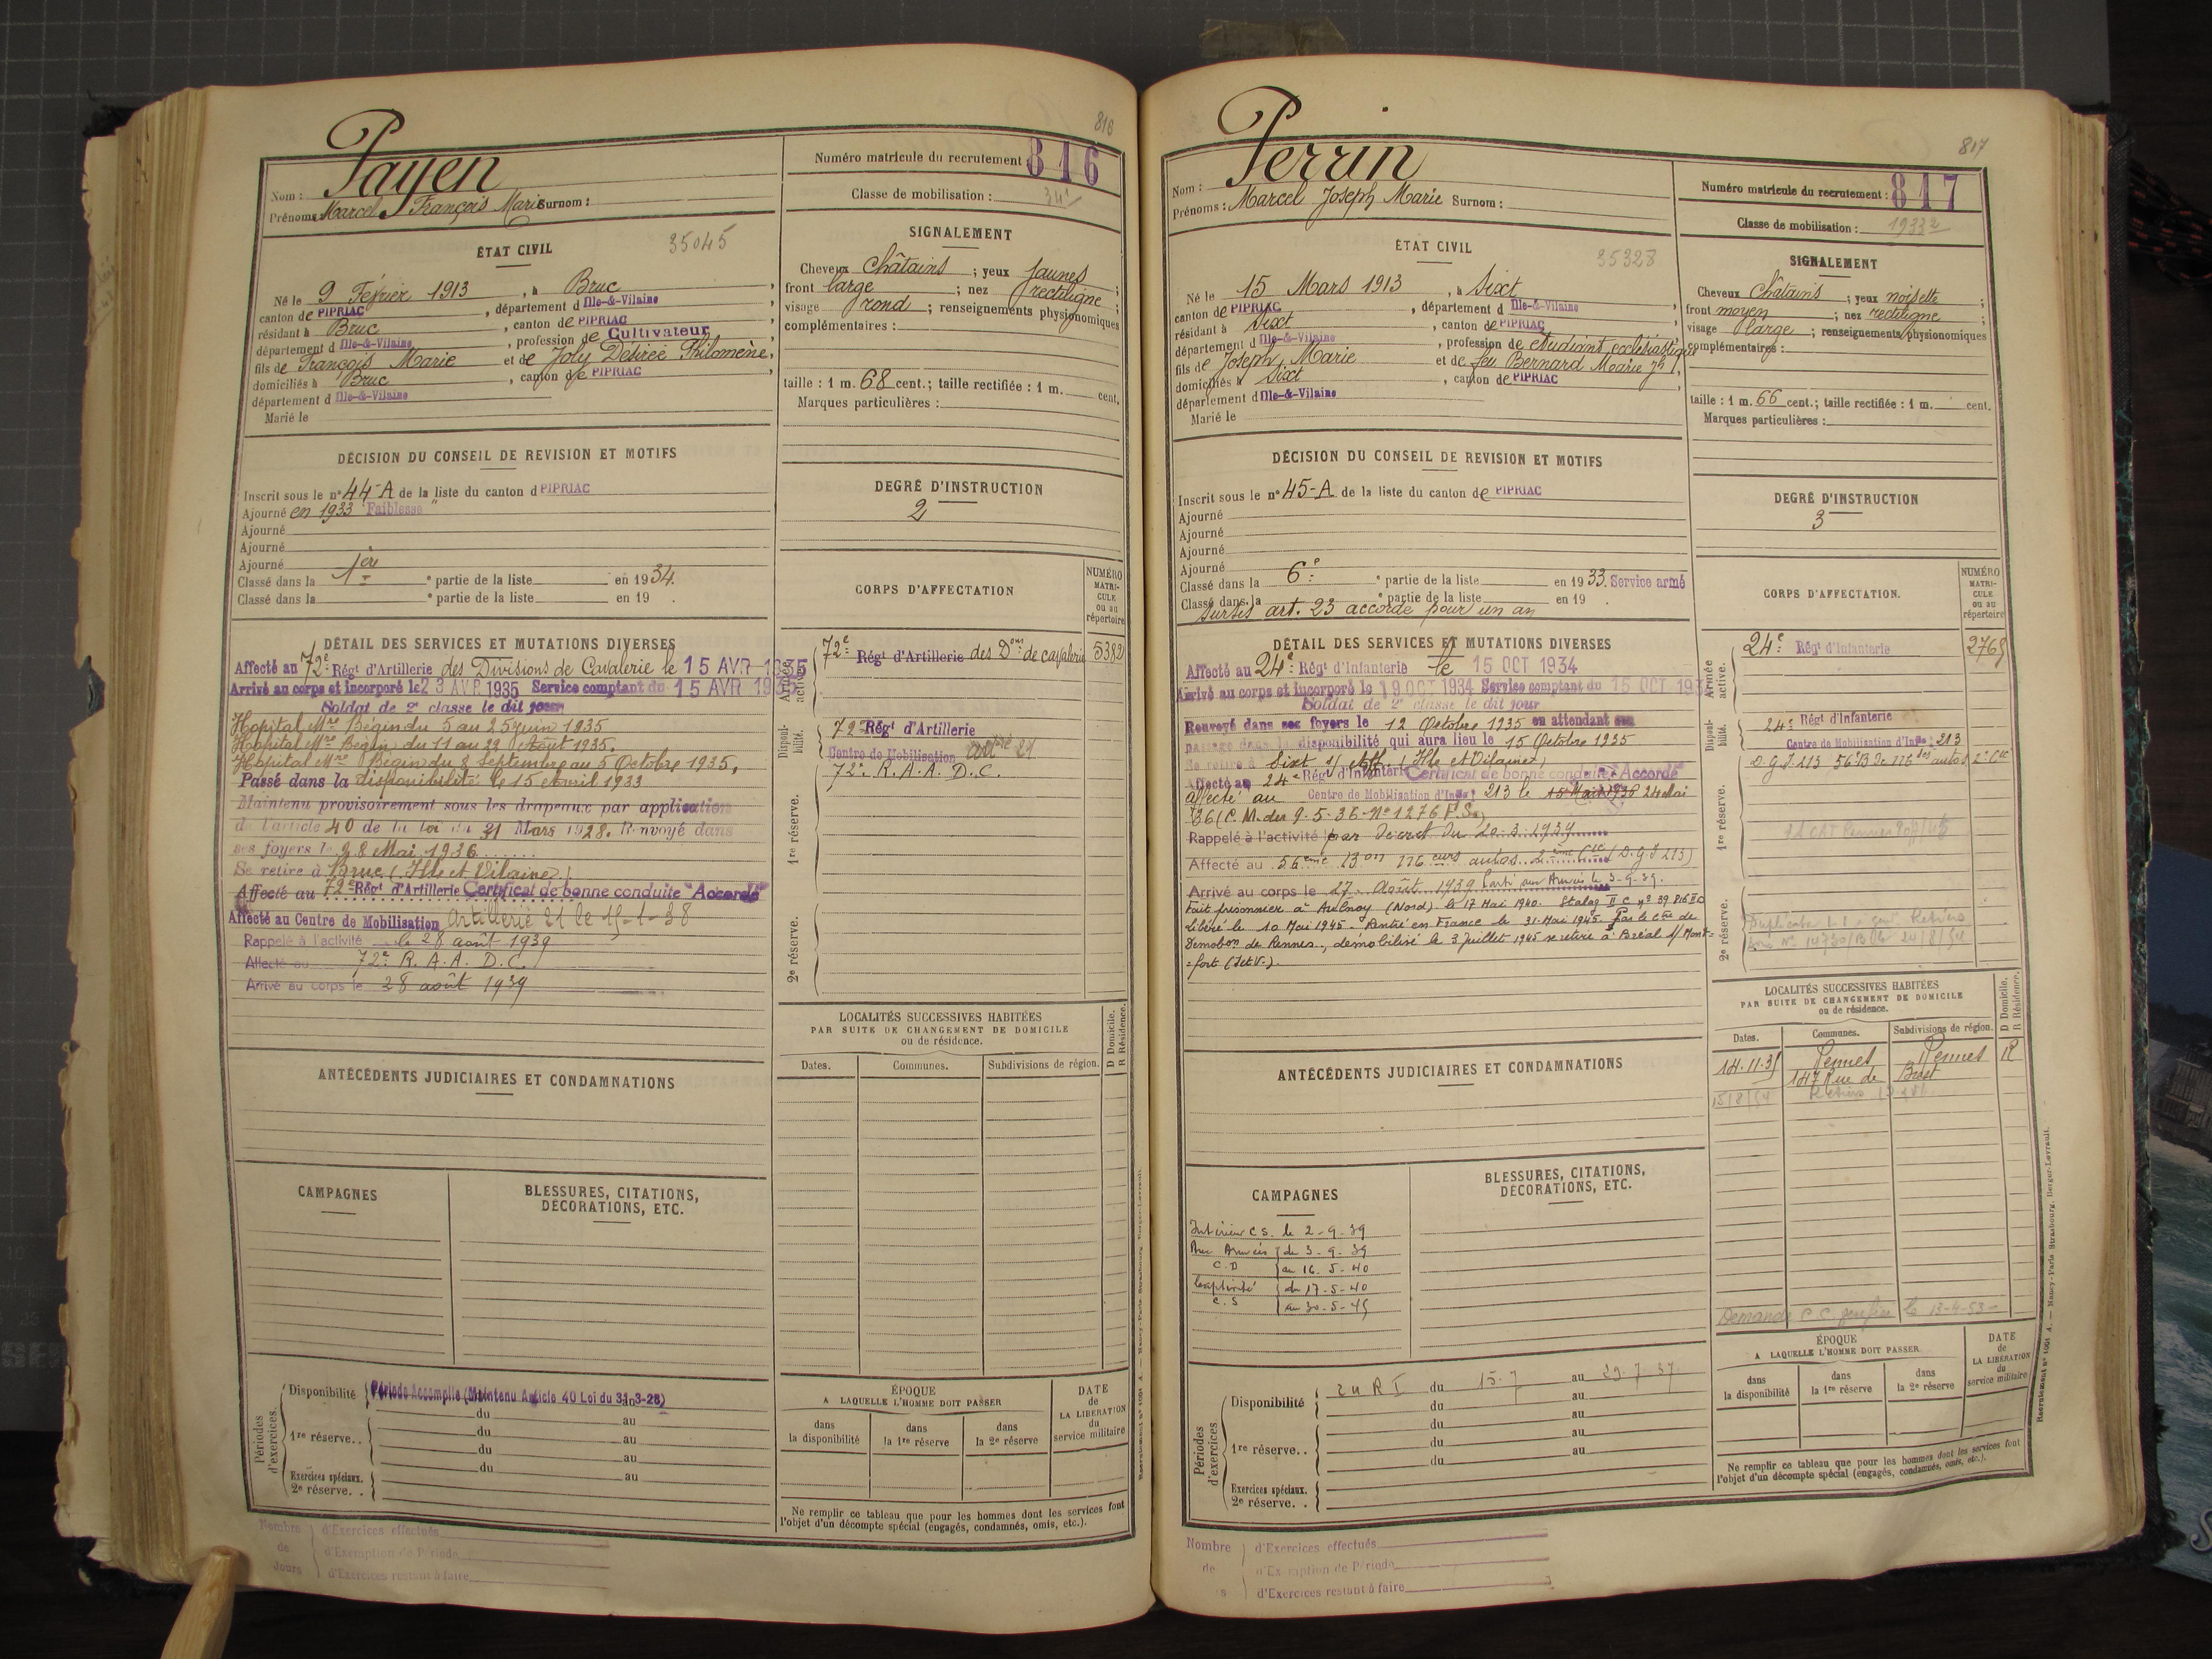 816
Nom : Payen
Prénoms : Marcel François Marie Surnom :
Numéro matricule du recrutement 816
Classe de mobilisation : 34
ÉTAT CIVIL
35045
Né le 9 Février 1913, à Bruc,
canton de PIPRIAC, département d Ille-&-Vilaine
résidant à Bruc, canton de PIPRIAC
département d Ille-&-Vilaine, profession de Cultivateur
fils de François Marie et de Joly Désirée Philomène,
domiciliés à Bruc, canton de PIPRIAC,
département d Ille-&-Vilaine
Marié le
SIGNALEMENT
Cheveux Châtains ; yeux Jaunes ;
front large ; nez rectiligne ;
visage rond ; renseignements physionomiques
complémentaires :
taille : 1 m. 68 cent.; taille rectifiée : 1 m. cent.
Marques particulières :
DÉCISION DU CONSEIL DE REVISION ET MOTIFS
Inscrit sous le n° 44-A de la liste du canton d PIPRIAC
Ajourné en 1933 "Faiblesse"
Ajourné
Ajourné
Ajourné
Classé dans la 1ère partie de la liste en 1934.
Classé dans la e partie de la liste en 19 .
DEGRÉ D'INSTRUCTION
2
CORPS D'AFFECTATION
NUMÉRO MATRICULE ou au répertoire
DÉTAIL DES SERVICES ET MUTATIONS DIVERSES
Affecté au 72e Régt d'Artillerie des Divisions de Cavalerie le 15 AVR 1935
Arrivé au corps et incorporé le 23 AVR 1935 Service comptant du 15 AVR 1935
Soldat de 2e classe le dit jour
Hopital Mre Bégin du 5 au 25 juin 1935
Hopital Mre Bégin du 11 au 22 Août 1935.
Hopital Mre Bégin du 8 Septembre au 5 Octobre 1935.
Passé dans la disponibilité le 15 Avril 1933
Maintenu provisoirement sous les drapeaux par application
de l'article 40 de la loi du 31 Mars 1928. Renvoyé dans
ses foyers le 28 Mai 1936
Se retire à Bruc (Ille et Vilaine)
Affecté au 72e Régt d'Artillerie Certificat de bonne conduite "Accordé"
Affecté au Centre de Mobilisation Artillerie 21 le 15-1-38
Rappelé à l'activité le 28 août 1939
Affecté au 72e R.A.A.D.C.
Arrivé au corps le 28 août 1939
Armée active.
72e Régt d'Artillerie des Dons de cavalerie 5382
Disponibilité.
72e Régt d'Artillerie
Centre de Mobilisation 21
72e R.A.A.D.C.
1re réserve.
2e réserve.
LOCALITÉS SUCCESSIVES HABITÉES
PAR SUITE DE CHANGEMENT DE DOMICILE
ou de résidence.
D Domicile. R Résidence.
Dates. Communes. Subdivisions de région.
ANTÉCÉDENTS JUDICIAIRES ET CONDAMNATIONS
CAMPAGNES
BLESSURES, CITATIONS,
DÉCORATIONS, ETC.
Périodes d'exercices.
Disponibilité Période Accomplie (Maintenu Article 40 Loi du 31-3-28)
du au
1re réserve.. du au
du au
du au
Exercices spéciaux.
2e réserve. .
ÉPOQUE
A LAQUELLE L'HOMME DOIT PASSER
dans la disponibilité
dans la 1re réserve
dans la 2e réserve
DATE de LA LIBÉRATION du service militaire
Ne remplir ce tableau que pour les hommes dont les services font
l'objet d'un décompte spécial (engagés, condamnés, omis, etc.).
Nombre de Jours
d'Exercices effectués
d'Exemption de Période
d'Exercices restant à faire
817
Nom : Perrin
Prénoms : Marcel Joseph Marie Surnom :
Numéro matricule du recrutement : 817
Classe de mobilisation : 1933 2
ÉTAT CIVIL
35328
Né le 15 Mars 1913, à Sixt
canton de PIPRIAC, département d Ille-&-Vilaine
résidant à Sixt, canton de PIPRIAC
département d Ille-&-Vilaine, profession de étudiant ecclésiastique
fils de Joseph Marie et de feu Bernard Marie Jh,
domiciliés à Sixt, canton de PIPRIAC
département d Ille-&-Vilaine
Marié le
SIGNALEMENT
Cheveux Châtains ; yeux noisette ;
front moyen ; nez rectiligne ;
visage large ; renseignements physionomiques
complémentaires :
taille : 1 m. 66 cent.; taille rectifiée : 1 m. cent.
Marques particulières :
DÉCISION DU CONSEIL DE REVISION ET MOTIFS
Inscrit sous le n° 45-A de la liste du canton de PIPRIAC
Ajourné
Ajourné
Ajourné
Ajourné
Classé dans la 6e partie de la liste en 1933. Service armé
Classé dans la e partie de la liste en 19 .
Sursis art. 23 accordé pour un an
DEGRÉ D'INSTRUCTION
3
CORPS D'AFFECTATION.
NUMÉRO MATRICULE ou au répertoire
DÉTAIL DES SERVICES ET MUTATIONS DIVERSES
Affecté au 24e Régt d'Infanterie le 15 OCT 1934
Arrivé au corps et incorporé le 19 OCT 1934 Service comptant du 15 OCT 1934
Soldat de 2e classe le dit jour
Renvoyé dans ses foyers le 12 Octobre 1935 en attendant son
passage dans la disponibilité qui aura lieu le 15 Octobre 1935
Se retire à Sixt s/ (Ille et Vilaine)
Affecté au 24e Régt d'Infanterie Certificat de bonne conduite "Accordé"
Affecté au Centre de Mobilisation d'Infie 213 le 15 Mai 1936 24 Mai
36 (C.M. du 9-5-36-N° 1276 P.S.)
Rappelé à l'activité par décret du 20.3.1939
Affecté au 56eme Bon 116 eurs autos 2eme Cie (D.G.I 213)
Arrivé au corps le 27 Août 1939 Parti aux Armées le 3-9-39.
Fait prisonnier à Aulnoy (Nord) le 17 Mai 1940. Stalag II C
Libéré le 10 Mai 1945. Rentré en France le 31 Mai 1945. Par le Ctre de
Demobon de Rennes, démobilisé le 3 juillet 1945 se retire à Bréal s/ Mont=
=fort (I et V.).
Armée active.
24e Régt d'Infanterie 2769
Disponibilité.
24e Régt d'Infanterie
Centre de Mobilisation d'Infie 213
D.G.I. 213 56e B 2e Cie
1re réserve.
2e réserve.
LOCALITÉS SUCCESSIVES HABITÉES
PAR SUITE DE CHANGEMENT DE DOMICILE
ou de résidence.
D Domicile. R Résidence.
Dates. Communes. Subdivisions de région.
14.11.35 Rennes Rennes R
147 Rue de Brest
15/2/54 Retiers
Demande C.C. le 13-4-53-
ANTÉCÉDENTS JUDICIAIRES ET CONDAMNATIONS
CAMPAGNES
Intérieur C.S. le 2-9-39
Aux Armées du 3-9-39
C.D au 16-5-40
Captivité du 17-5-40
C.S au 30-5-45
BLESSURES, CITATIONS,
DÉCORATIONS, ETC.
Périodes d'exercices
Disponibilité 24 R I du 15-7 au 29-7-37
du au
1re réserve.. du au
du au
du au
Exercices spéciaux.
2e réserve. .
ÉPOQUE
A LAQUELLE L'HOMME DOIT PASSER
dans la disponibilité
dans la 1re réserve
dans la 2e réserve
DATE de LA LIBÉRATION du service militaire
Ne remplir ce tableau que pour les hommes dont les services font
l'objet d'un décompte spécial (engagés, condamnés, omis, etc.).
Nombre de
d'Exercices effectués
d'Exemption de Période
d'Exercices restant à faire
Recrutement n° 1091 A. — Nancy-Paris-Strasbourg, Berger-Levrault.